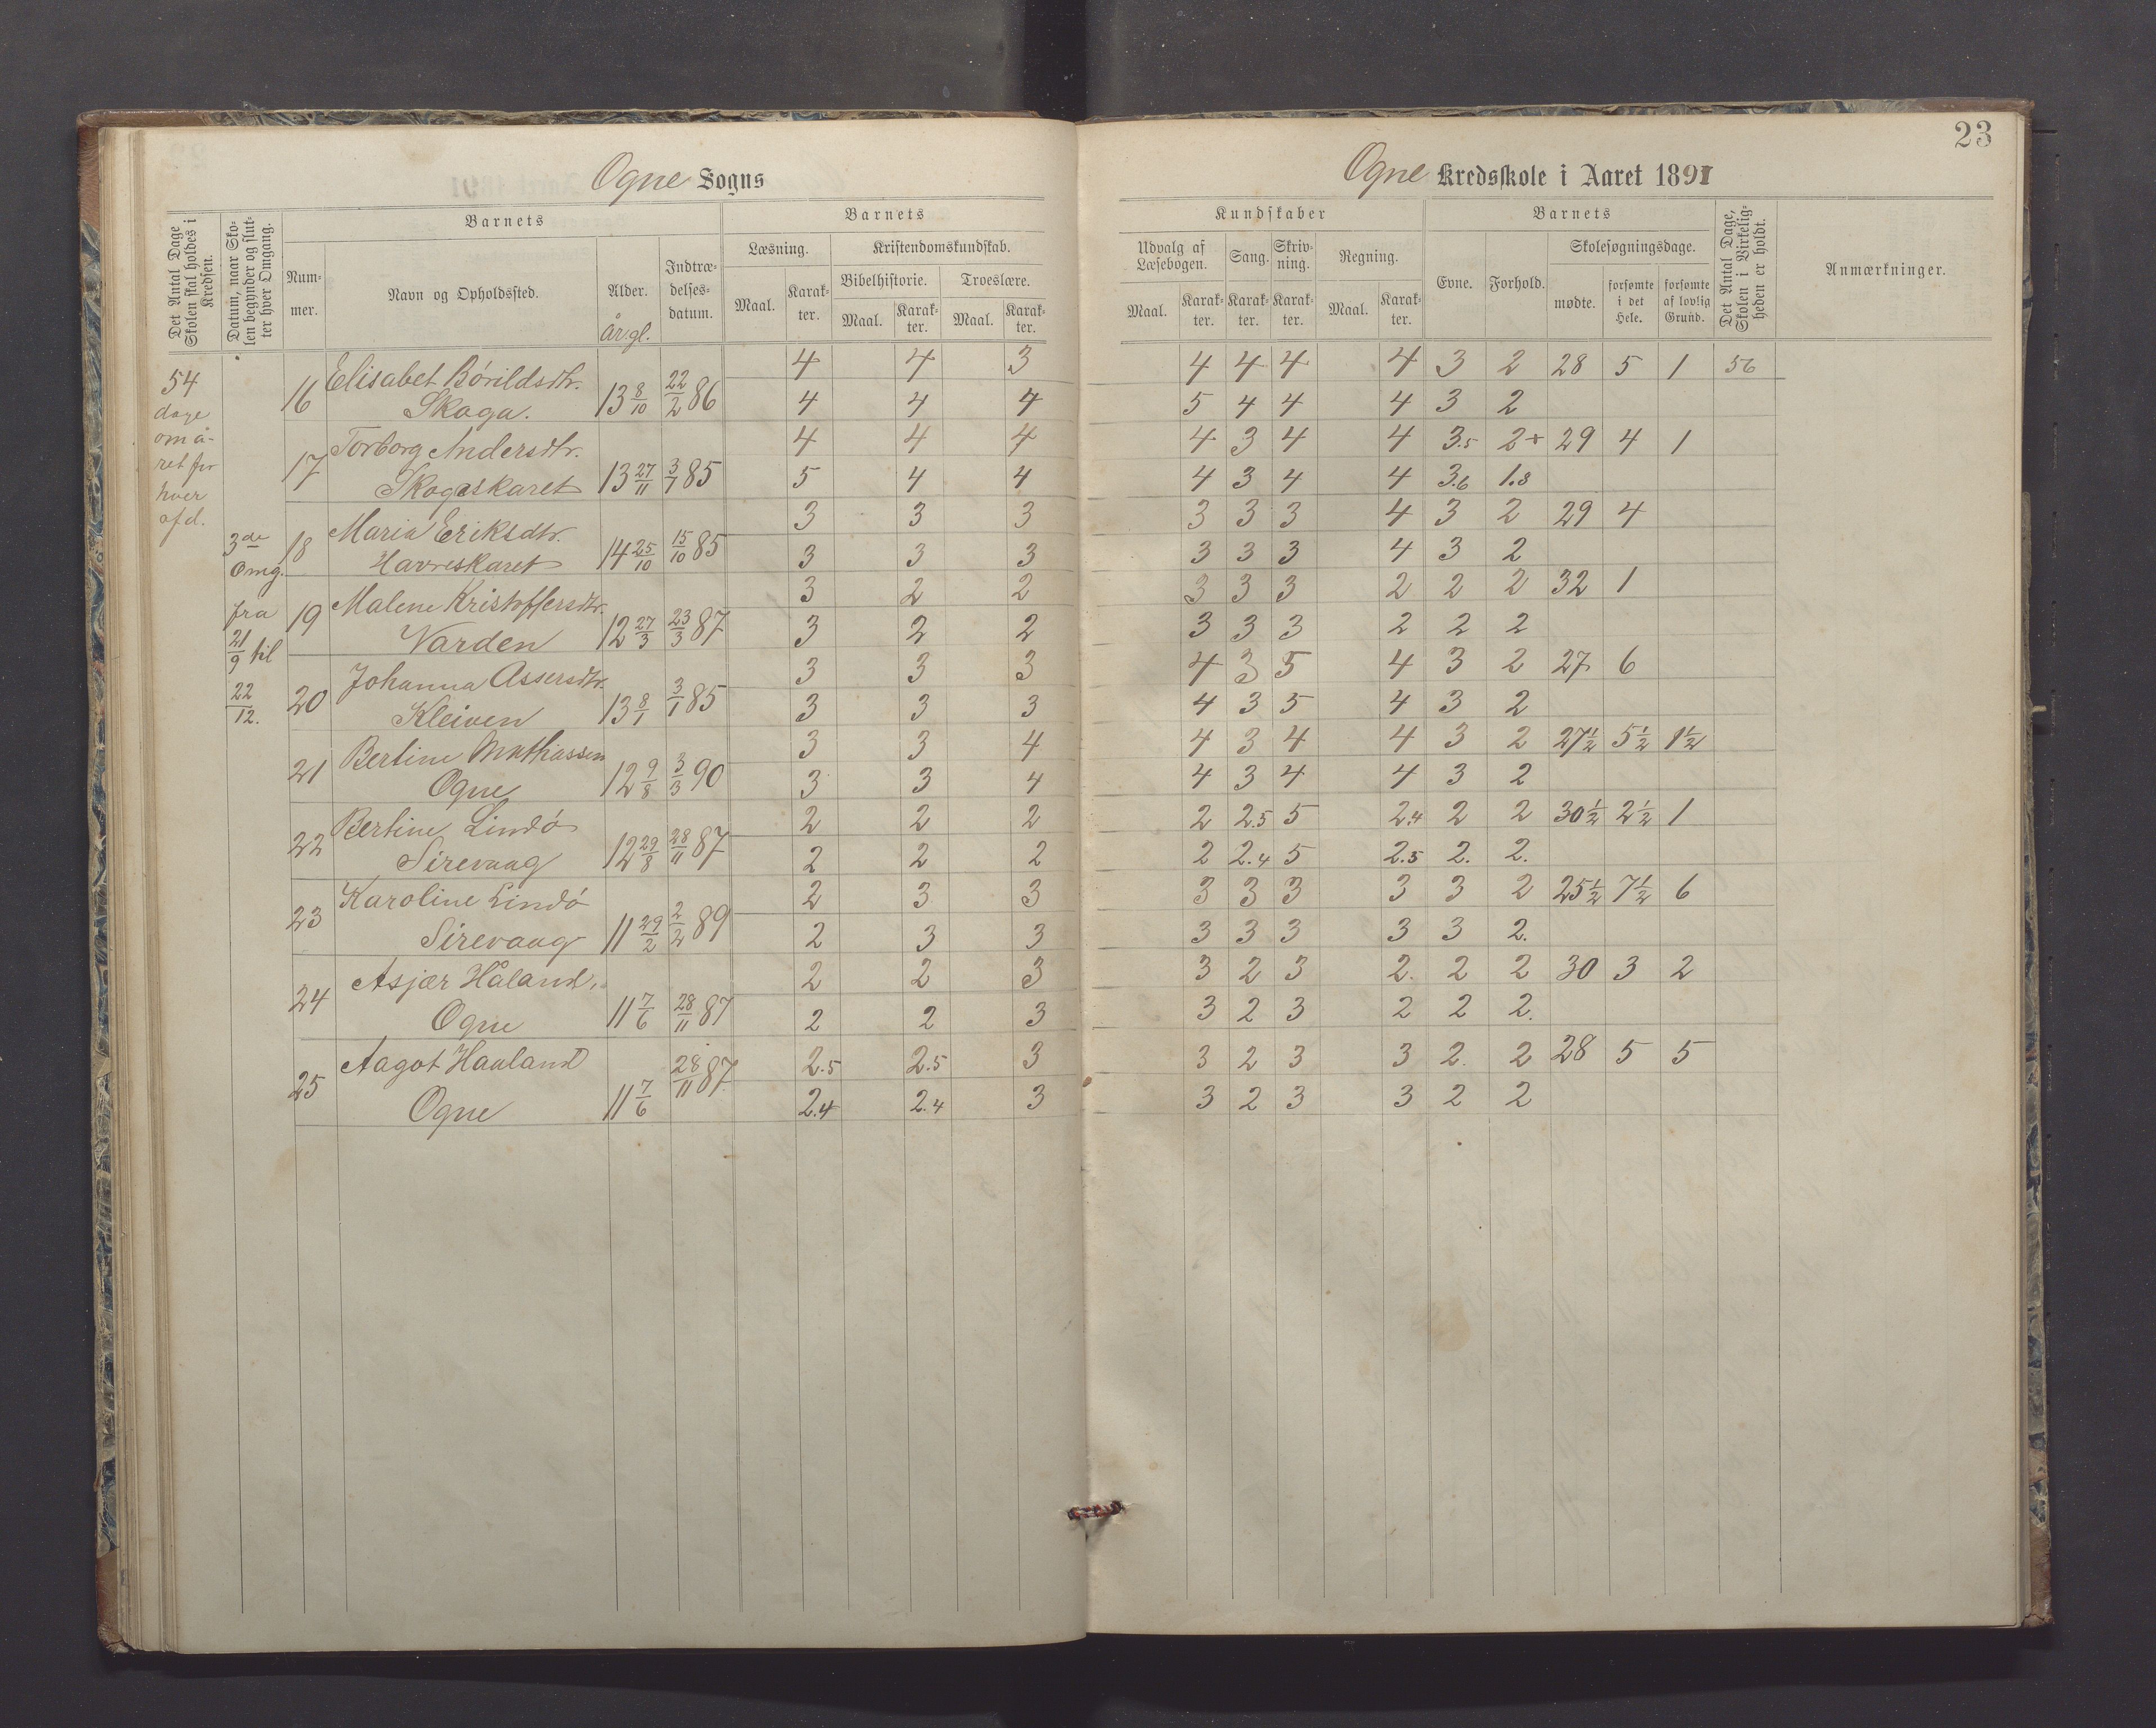 23
Ogne Sogns
Ogne Kredsskole i Aaret 1891
Det Antal Dage Skolen skal holdes i Kredsen.
Datum, naar Skolen begynder og slutter hver Omgang.
Barnets
Nummer.
Navn og Opholdssted.
Alder.
År. gl.
Indtrædelsesdatum.
Barnets
Læsning.
Kristendomskundskab.
Bibelhistorie.
Troeslære.
Maal.
Karakter.
Maal.
Karakter.
Maal.
Karakter.
Kundskaber
Udvalg af Læsebogen.
Sang.
Skrivning.
Regning.
Maal.
Karakter.
Karakter.
Karakter.
Maal.
Karakter.
Barnets
Evne.
Forhold.
Skolesøgningsdage.
mødte.
forsømte i det Hele.
forsømte af lovlig Grund.
Det Antal Dage, Skolen i Virkeligheden er holdt.
Anmærkninger.
54 dage om året for hver afd.
3de Omg. fra 21/9 til 22/12.
16 Elisabet Børildsdtr. 4 4 3 4 4 4 4 3 2 28 5 1 56
Skoga. 13 8/10 22/2 86 4 4 4 5 4 4 4 3 2
17 Torborg Andersdtr. 4 4 4 4 3 4 4 3.5 2+ 29 4 1
Skogaskaret 13 27/11 3/1 85 5 4 4 4 3 4 4 3.6 1.8
18 Maria Eriksdtr. 3 3 3 3 3 3 4 3 2 29 4
Havreskaret 14 25/10 15/10 85 3 3 3 3 3 3 4 3 2
19 Malene Kristoffersdtr. 3 2 2 3 3 3 2 2 2 32 1
Varden 12 27/3 23/3 87 3 2 2 3 3 3 2 2 2
20 Johanna Assersdtr. 3 3 3 4 3 5 4 3 2 27 6
Kleiven 13 8/1 3/1 85 3 3 3 4 3 5 4 3 2
21 Bertine Mathiassen 3 3 4 4 3 4 4 3 2 27½ 5½ 1½
Ogne 12 9/8 3/3 90 3 3 4 4 3 4 4 3 2
22 Bertine Lindö 2 2 2 2 2.5 5 2.4 2 2 30½ 2½ 1
Sirevaag 12 29/8 28/11 87 2 2 2 2 2.4 5 2.5 2. 2.
23 Karoline Lindö 2 3 3 3 3 3 3 3 2 25½ 7½ 6
Sirevaag 11 29/2 2/2 89 2 3 3 3 3 3 3 3 2.
24 Asjær Håland. 2 2 3 3 2 3 2. 2 2 30 3 2
Ogne 11 7/6 28/11 87 2 2 3 3 2 3 2 2 2.
25 Aagot Haaland 28/11 87 2.5 2.5 3 3 2 3 3 2. 2 28 5 5
Ogne 11 7/6 2.4 2.4 3 3 2 3 3 2 2